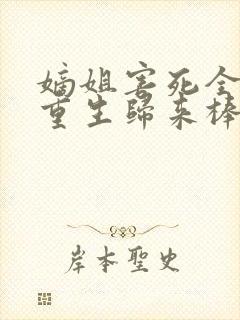 嫡姐害死全
重生歸来棒
岸本聖史